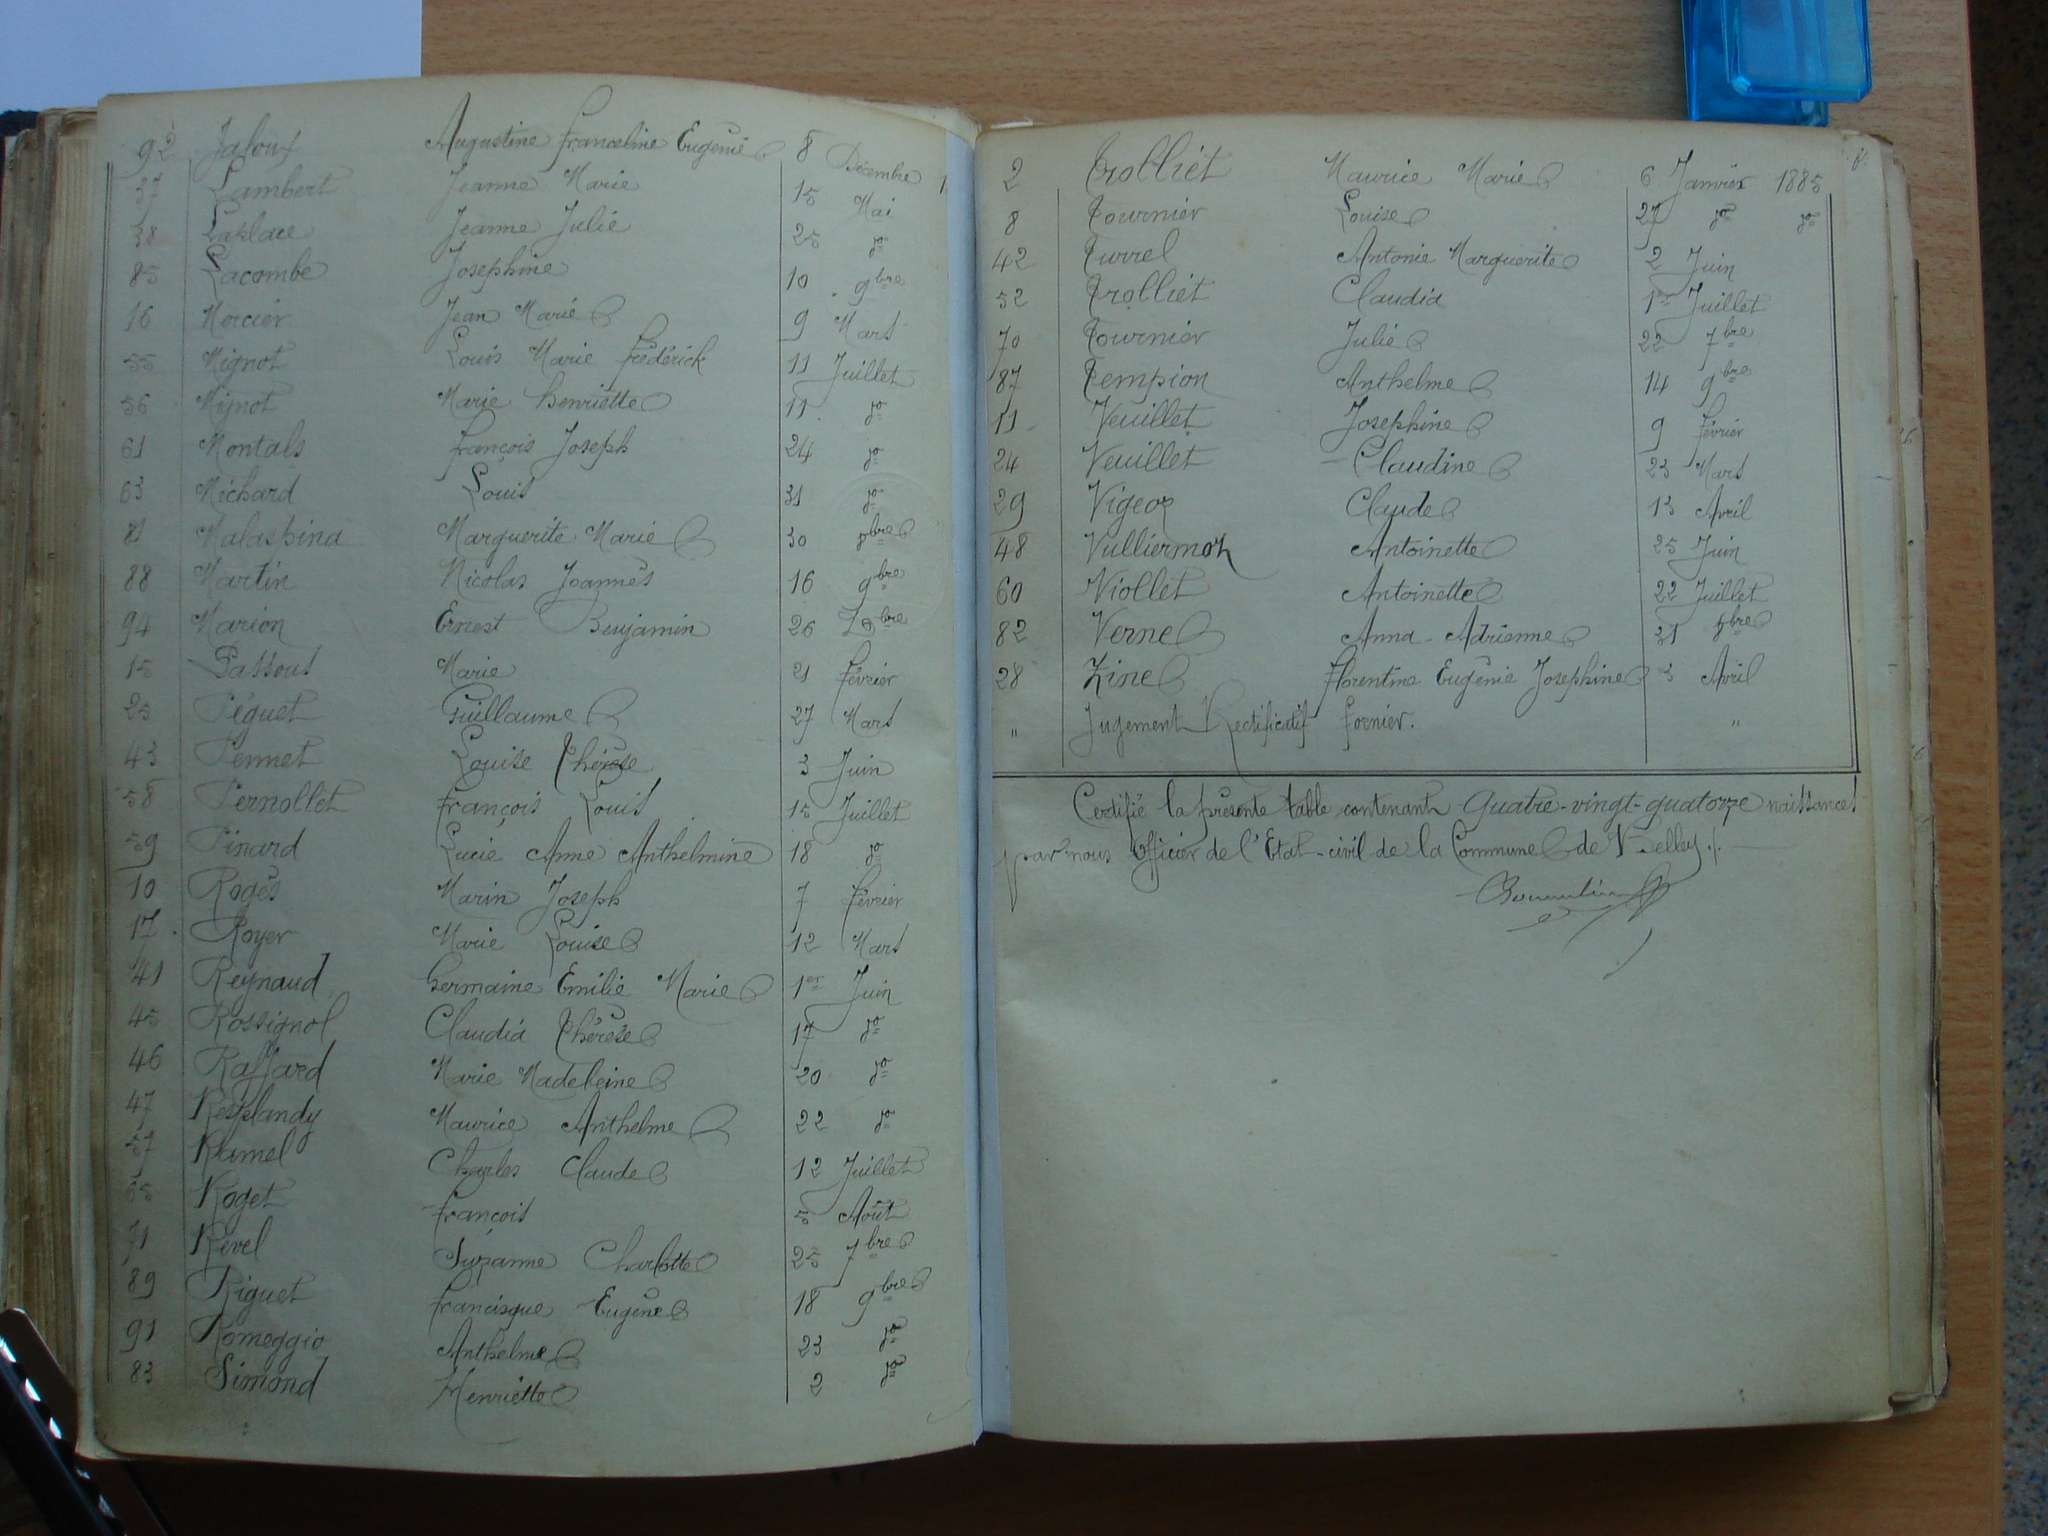 92 Jaloux Augustine Franceline Eugénie 8 Décembre 1
37 Lambert Jeanne Marie 15 Mai
38 Laplace Jeanne Julie 25 do
85 Lacombe Josephine 10 9bre
16 Mercier Jean Marie 9 Mars
55 Mignot Louis Marie Frédérick 11 Juillet
56 Mignot Marie Henriette 11 do
61 Montals François Joseph 24 do
63 Michard Louis 31 do
81 Malaspina Marguerite Marie 30 8bre
88 Martin Nicolas Joannès 16 9bre
94 Marion Ernest Benjamin 26 Xbre
15 Passous Marie 21 Février
25 Péguet Guillaume 27 Mars
43 Pennet Louise Thérèse 3 Juin
58 Pernollet François Louis 15 Juillet
59 Pinard Lucie Anne Anthelmine 18 do
10 Rogès Marin Joseph 7 Février
17 Royer Marie Louise 12 Mars
41 Reynaud Germaine Emilie Marie 1er Juin
45 Rossignol Claudia Thérèse 17 do
46 Raffard Marie Madeleine 20 do
47 Resplandy Maurice Anthelme 22 do
57 Ramel Charles Claude 12 Juillet
65 Roget François 5 Août
71 Revel Suzanne Charlotte 25 7bre
89 Riguet Francisque Eugène 18 9bre
91 Romeggio Anthelme 23 do
83 Simond Henriette 2 do
2 Trolliet Maurice Marie 6 Janvier 1885
8 Tournier Louise 27 do do
42 Turrel Antonie Marguerite 2 Juin
52 Trolliet Claudia 1er Juillet
70 Tournier Julie 22 7bre
87 Tempion Anthelme 14 9bre
11 Veuillet Josephine 9 Février
24 Veuillet Claudine 23 Mars
29 Vigeoz Claude 13 Avril
48 Vulliermoz Antoinette 25 Juin
60 Viollet Antoinette 22 Juillet
82 Verne Anna-Adrienne 31 8bre
28 Zine Florentine Eugénie Josephine 3 Avril
" Jugement Rectificatif Fornier. "
Certifié la présente table contenant Quatre-vingt-quatorze naissances
par nous Officier de l'Etat-civil de la Commune de Belley./.